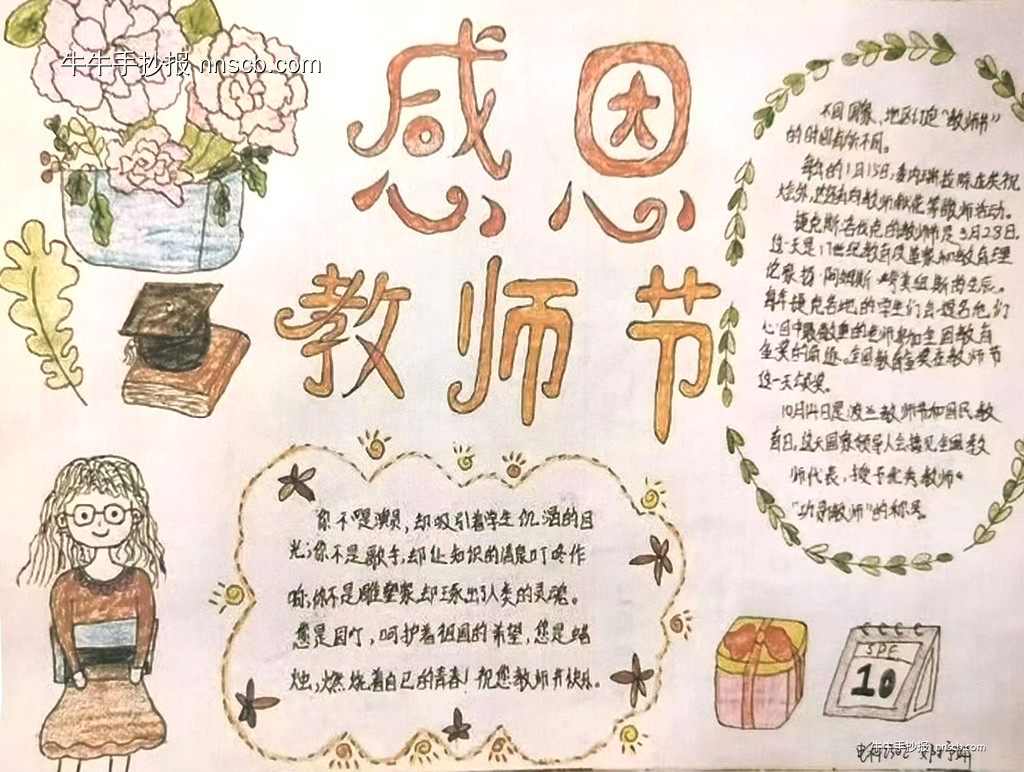 牛牛手抄报 nnscb.com
感恩
教师节
不同国家、地区订定“教师节”
的时间有所不同。
每年的1月15日,委内瑞拉除庆祝
捷克斯洛伐克的教师节是3月28日,
这一天是17世纪教育改革家和教育理
论家扬·阿姆斯·夸美纽斯的生辰。
每年捷克各地的学生们会提名他们
心目中最敬重的老师参加全国教育
金奖的角逐。全国教育金奖在教师节
这一天颁奖。
10月14日是波兰教师节和国民教
育日,这天国家领导人会接见全国教
师代表,授予优秀教师
“功勋教师”的称号。
你不是演员,却吸引着学生们渴的目
光;你不是歌手,却让知识的清泉叮咚作
响;你不是雕塑家却琢出了人类的灵魂。
您是园丁,呵护着祖国的希望,您是蜡
烛,燃烧着自己的青春!祝您教师节快乐。
SPE
10
牛牛手抄报 nnscb.com